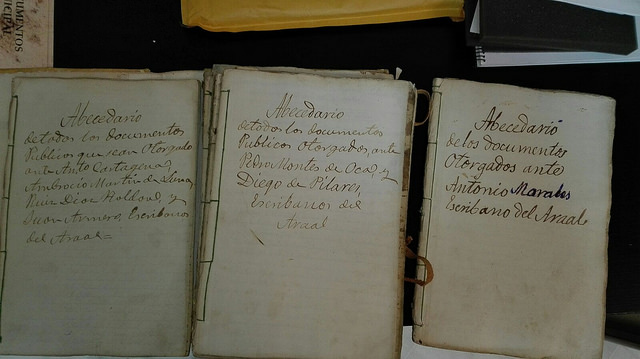 UMENTOS
ICIPAL
Abecedario
de todos los documentos
Publicos que sean Otorgado
ante Anto Cartagena,
Ambrocio Martin de
Ruiz Diaz Roldan, y
Juan Escribanos
del Araal =
Abecedario
de todos los documentos
Publicos Otorgados ante
Pedro Montes de Oca, y
Diego de Pilares,
Escribanos del
Araal
Abecedario
de los documentos
Otorgados ante
Antonio Morales
Escribano del Araal